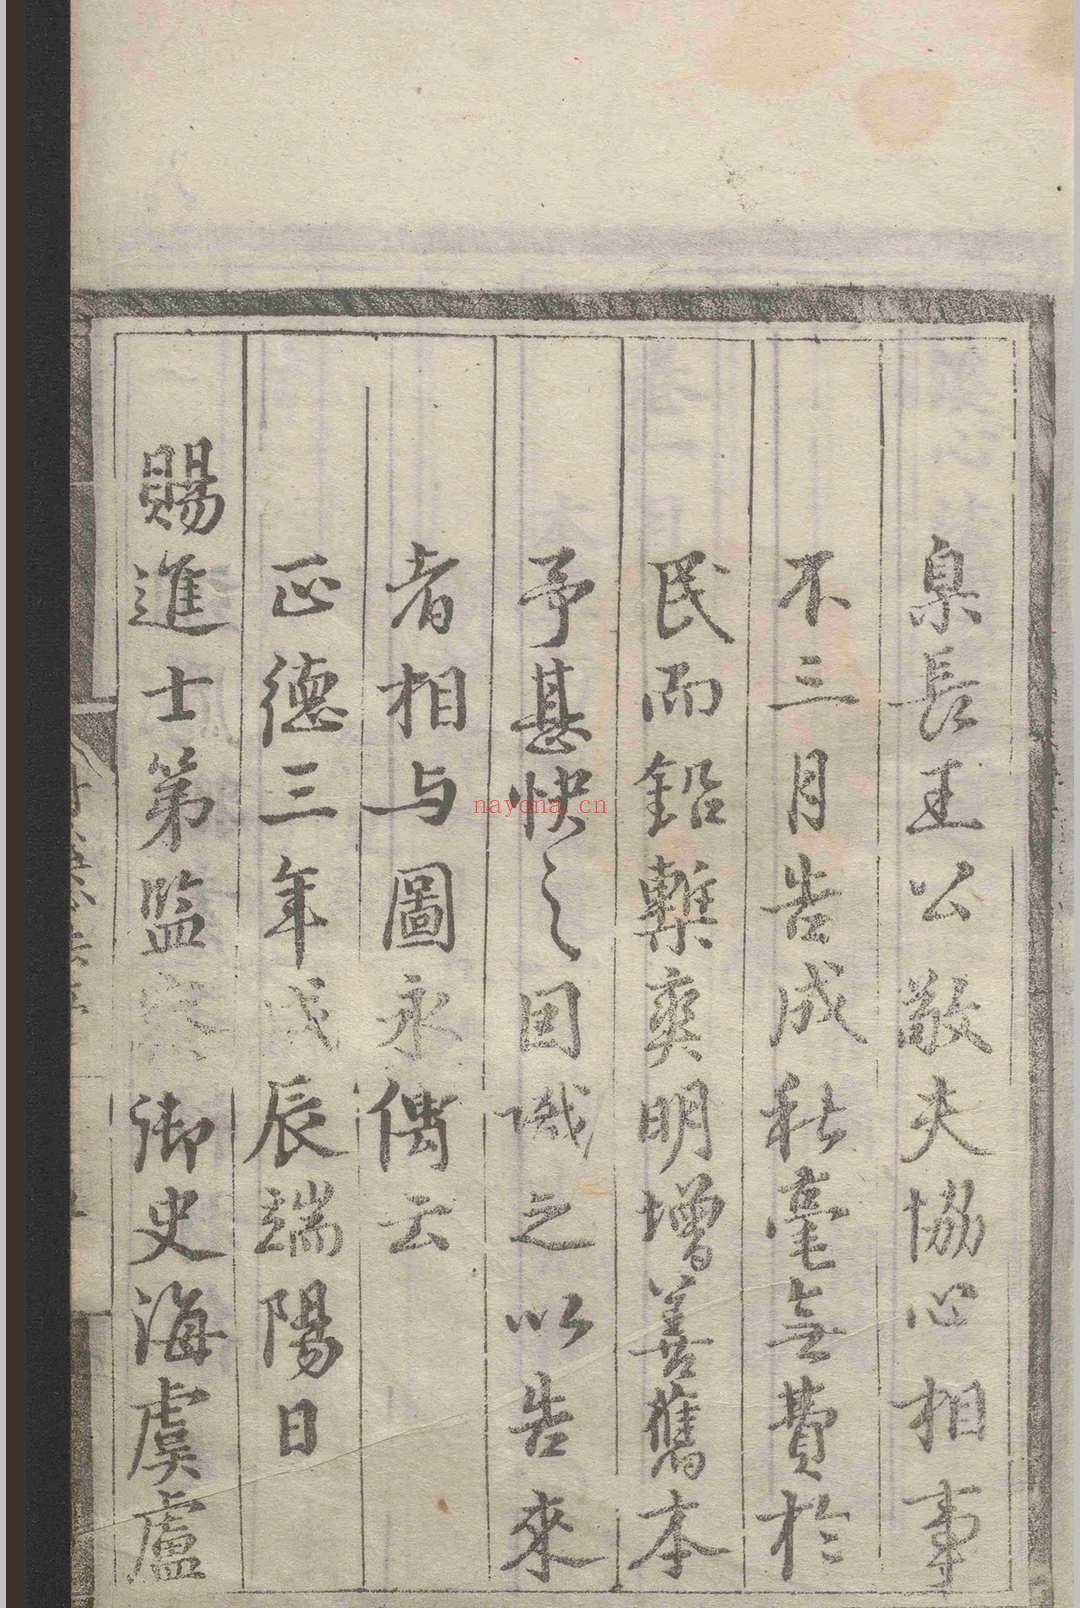 臬長王公敬夫協心相事
不三月告成秋毫無費於
民而鉛槧爽明增善舊本
予甚快之因識之以告來
者相与圖永傳云
正德三年戊辰端陽日
賜進士第監察御史海虞盧
nayona.cn